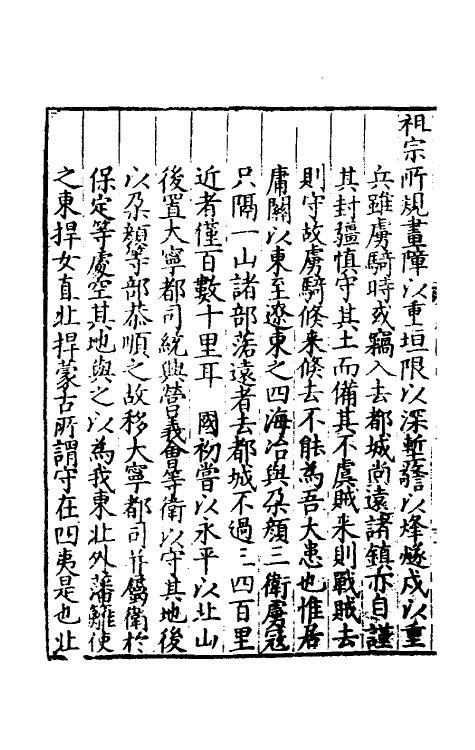 祖宗所規畫障以重垣限以深塹警以烽燧戍以重
兵雖虜騎時或竊入去都城尚遠諸鎮亦自謹
其封疆慎守其土而備其不虞賊来則戰賊去
則守故虜騎條来條去不能為吾大患也惟居
庸關以東至遼東之四海冶與朶顏三衛虜冦
只隔一山諸部落遠者去都城不過三四百里
近者僅百數十里耳　國初嘗以永平以北山
後置大寧都司統興營義會等衛以守其地後
以朶顏等部恭順之故移大寧都司并屬衛於
保定等處空其地與之以為我東北外藩籬使
之東捍女直北捍蒙古所謂守在四夷是也北